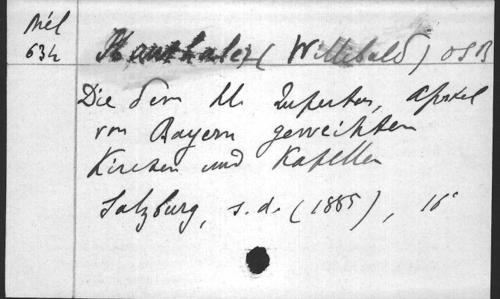 Mél
634
Hauthaler (Willibald) OSB
Die dem hl. Rupertus, Apostel
von Bayern geweihten
Kirchen und Kapellen
Salzburg, s.d. (1885), 16°